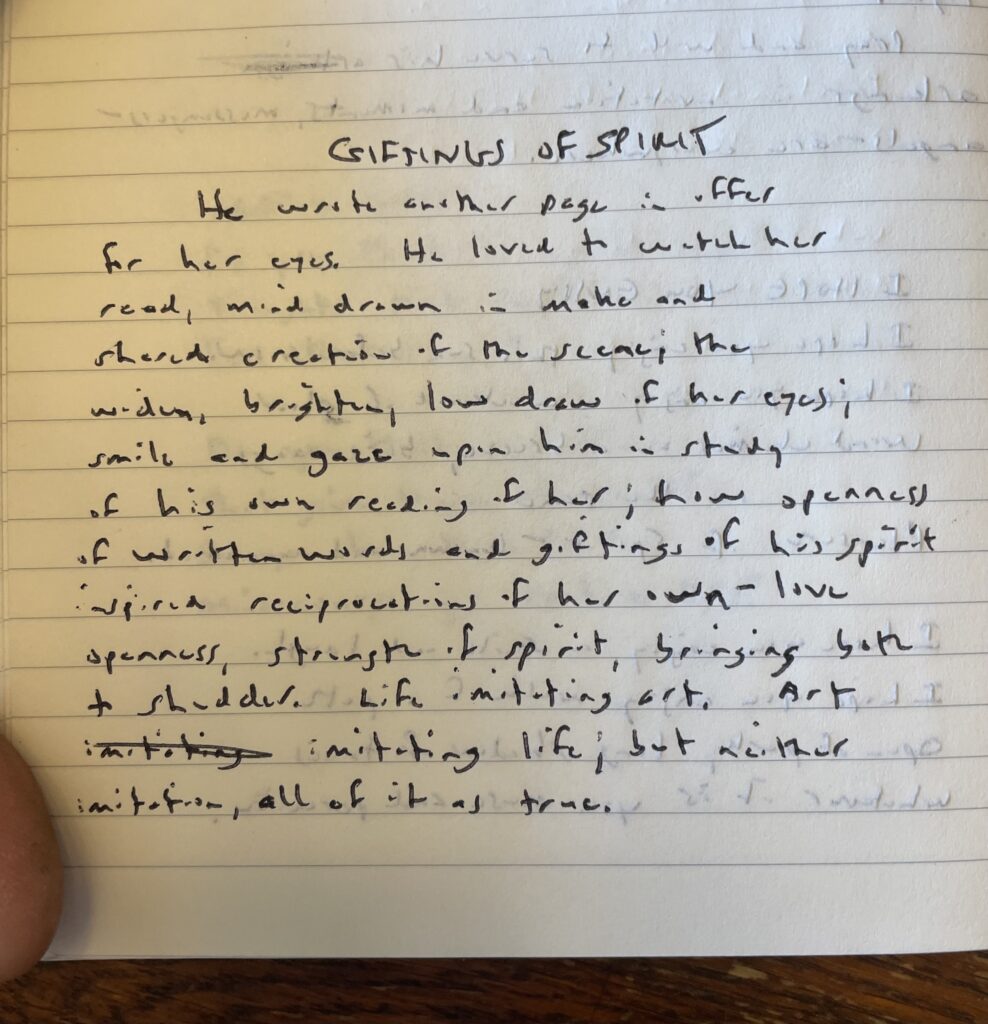 GIFTINGS OF SPIRIT
He wrote another page in offer
for her eyes. He loved to watch her
read, mind drawn in make and
shared creation of the scene; the
widen, brighten, low draw of her eyes;
smile and gaze upon him in study
of his own reading of her; how openness
of written words and giftings of his spirit
inspired reciprocations of her own - love
openness, strength of spirit, bringing both
to shudder. Life imitating art. Art
imitating imitating life; but neither
imitation, all of it as true.